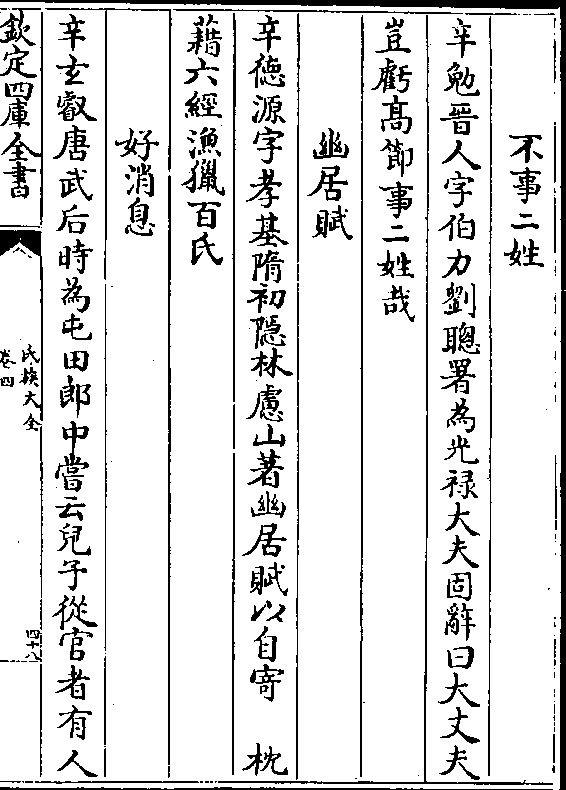 不事二姓
辛勉晉人字伯力劉聰署為光祿大夫固辭曰大丈夫
豈虧髙節事二姓哉
幽居賦
辛徳源字孝基隋初隐林慮山著幽居賦以自寄　枕
藉六經漁獵百氏
好消息
辛玄叡唐武后時為屯田郎中嘗云兒子從官者有人
欽定四庫全書
氏族大全
卷四
四十八